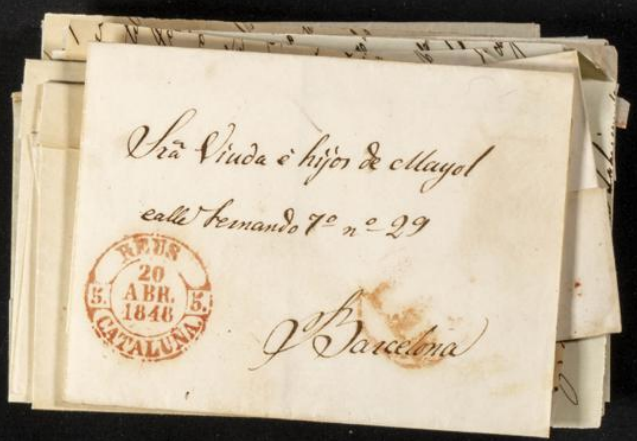 Sra Viuda é hijos de Mayol
calle Fernando 7º nº 29
Barcelona
REUS
20
ABR.
1846
5. 5.
CATALUÑA